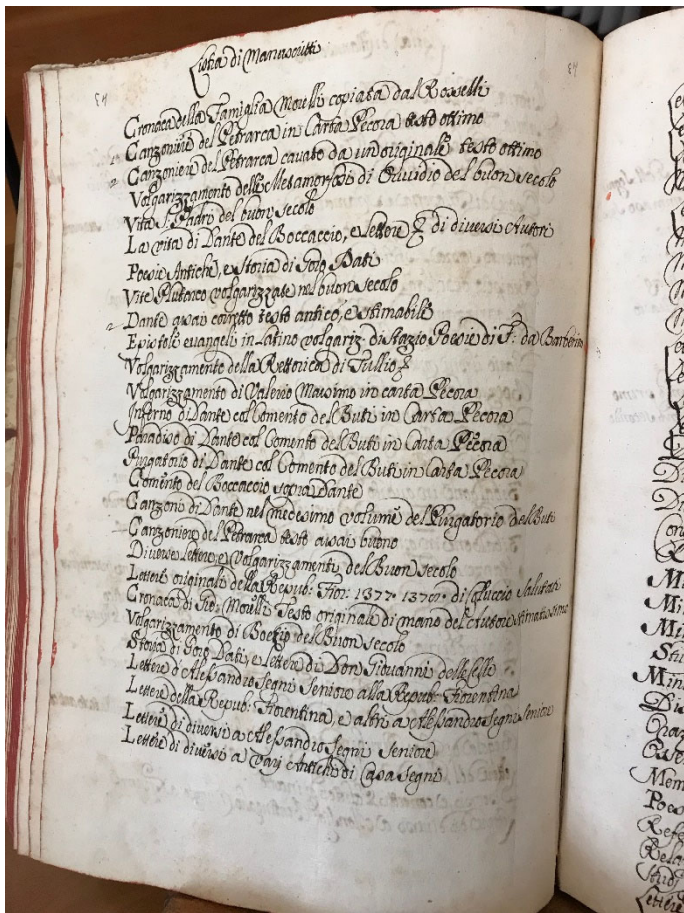 Lista di Manuscritti
Cronaca della Famiglia Morelli copiata dal Rosselli
Canzoniere del Petrarca in Carta Pecora testo ottimo
Canzoniere del Petrarca cavato da un originale testo ottimo
Volgarizzamento delle Metamorfosi di Ouvidio del buon secolo
Vita S. Padri del buon secolo
La vita di Dante del Boccaccio, e lettere di diversi Autori
Poesie Antiche, e Storia di Goro Dati
Vite Plutarco volgarizzate nel buon secolo
Dante assai corretto testo antico, e stimabile
Epistole euangeli in Latino volgariz: di Stazio Poesie di F: da Barberin
Volgarizzamento della Rettorica di Tullio
Volgarizzamento di Valerio Massimo in carta Pecora
Inferno di Dante col Comento del Buti in Carta Pecora
Paradiso di Dante col Comento del Buti in Carta Pecora
Purgatorio di Dante col Comento del Buti in Carta Pecora
Comento del Boccaccio sopra Dante
Canzoni di Dante nel medesimo volume del Purgatorio del Buti
Canzoniere del Petrarca testo assai buono
Diverse lettere, e Volgarizzamenti del Buon secolo
Lettere originali della Repub: Fior: 1377. di Coluccio Salutati
Cronaca di Gio: Morelli Testo originale di mano dell'Autore stimatissimo
Volgarizzamento di Boezio del Buon secolo
Storia di Goro Dati, e Lettere di Don Giovanni delle Celle
Lettere d'Alessandro Segni Seniore alla Repub: Fiorentina
Lettere della Repub: Fiorentina, e altri a Alessandro Segni Seniore
Lettere di diversi a Alessandro Segni Seniore
Lettere di diversi a varj Antichi di Casa Segni